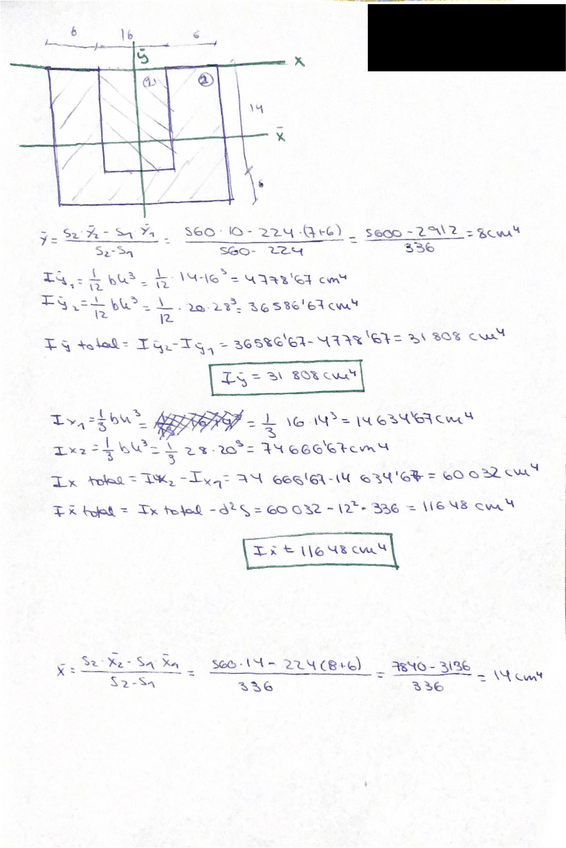 6 16 6
ȳ
x
① ②
14
x̄
6
ȳ = (S2·ȳ2 - S1 ȳ1)/(S2-S1) = (560·10 - 224·(7+6))/(560-224) = (5600-2912)/336 = 8cm⁴
Iȳ1 = 1/12 bh³ = 1/12 · 14·16³ = 4778'67 cm⁴
Iȳ2 = 1/12 bh³ = 1/12 · 20·28³ = 36586'67 cm⁴
Iȳ total = Iȳ2 - Iȳ1 = 36586'67 - 4778'67 = 31 808 cm⁴
Iȳ = 31 808 cm⁴
Ix1 = 1/3 bh³ = = 1/3 16·14³ = 14634'67 cm⁴
Ix2 = 1/3 bh³ = 1/3 28·20³ = 74666'67 cm⁴
Ix total = Ix2 - Ix1 = 74 666'67 - 14 634'67 = 60 032 cm⁴
Ix̄ total = Ix total - d²S = 60 032 - 12²·336 = 11648 cm⁴
Ix̄ = 11648 cm⁴
x̄ = (S2·x̄2 - S1·x̄1)/(S2-S1) = (560·14 - 224(8+6))/336 = (7840-3136)/336 = 14 cm⁴